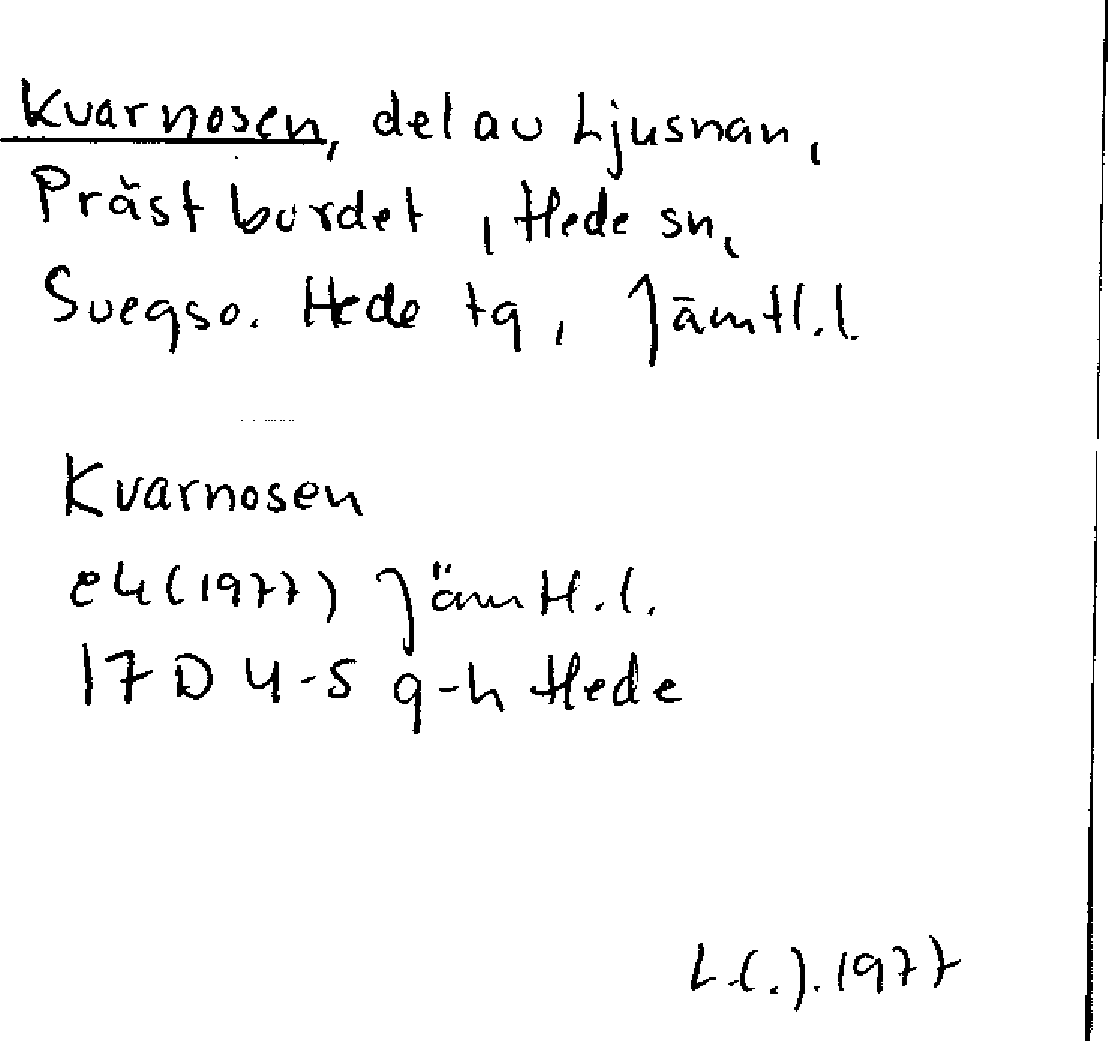 Kvarnosen, del av Ljusnan,
Prästbordet, Hede sn,
Svegs o. Hede tg, Jämtl. l.
Kvarnosen
ek (1977) Jämtl. l.
17 D 4-5 g-h Hede
1977